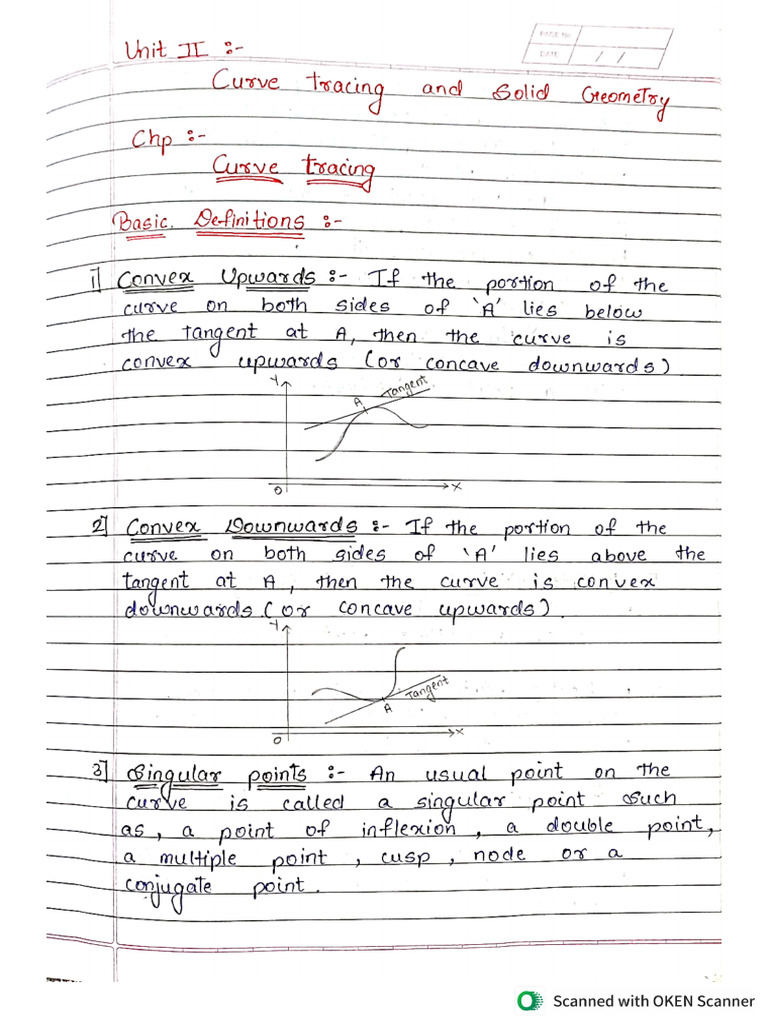 PAGE No.
DATE / /
Unit II :-
Curve tracing and Solid Geometry
Chp :-
Curve tracing
Basic Definitions :-
1] Convex Upwards :- If the portion of the
curve on both sides of 'A' lies below
the tangent at A, then the curve is
convex upwards (or concave downwards)
Y
A Tangent
O X
2] Convex Downwards :- If the portion of the
curve on both sides of 'A' lies above the
tangent at A, then the curve is convex
downwards (or concave upwards).
Y
Tangent
A
O X
3] Singular points :- An usual point on the
curve is called a singular point such
as, a point of inflexion, a double point,
a multiple point, cusp, node or a
conjugate point.
Scanned with OKEN Scanner